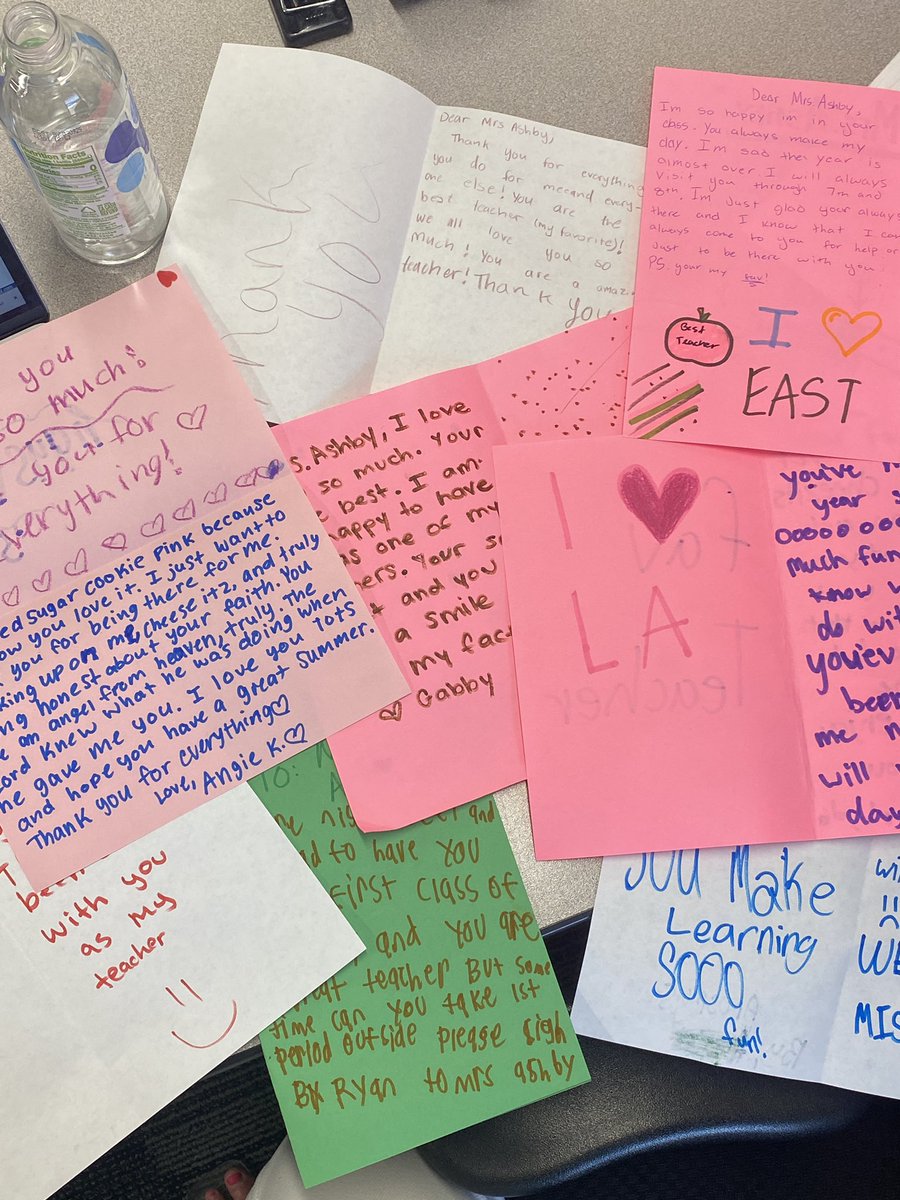 Nutrition Facts
Thank
you
Dear Mrs Ashby,
Thank you for everything
you do for me and every-
one else! You are the
best teacher (my favorite)!
we all love you so
much! You are a amaz
teacher! Thank you
Dear Mrs. Ashby,
Im so happy im in your
class. You always make my
day. I'm sad the year is
almost over I will always
visit you through 7th and
8th. I'm Just glad your always
there and I know that I can
always come to you for help or
Just to be there with you.
PS. your my fav!
Best
Teacher
I
EAST
you
so much!
you for
everything!
ed sugar cookie pink because
ow you love it. I just want to
you for being there for me.
king up on my cheese itz, and truly
ng honest about your faith. You
e an angel from heaven, truly. The
Lord knew what he was doing when
he gave me you. I love you tots
and hope you have a great summer.
Thank you for everything
Love, Angie K.
s. Ashby, I love
so much. Your
best. I am
happy to have
as one of my
ers. Your s
and you
a smile
my face
Gabby
I
LA
fav
Teacher
you've
year
ooooo oo
much fun
know w
do with
you'ev
been
me
will
day
been
with you
as my
teacher
To:
and
ad to have you
First class of
and you are
great teacher But some
time can you take 1st
period outside please sigh
By Ryan to mrs ashby
you Make
Learning
SOOO
fun!
wi
WE
MIS